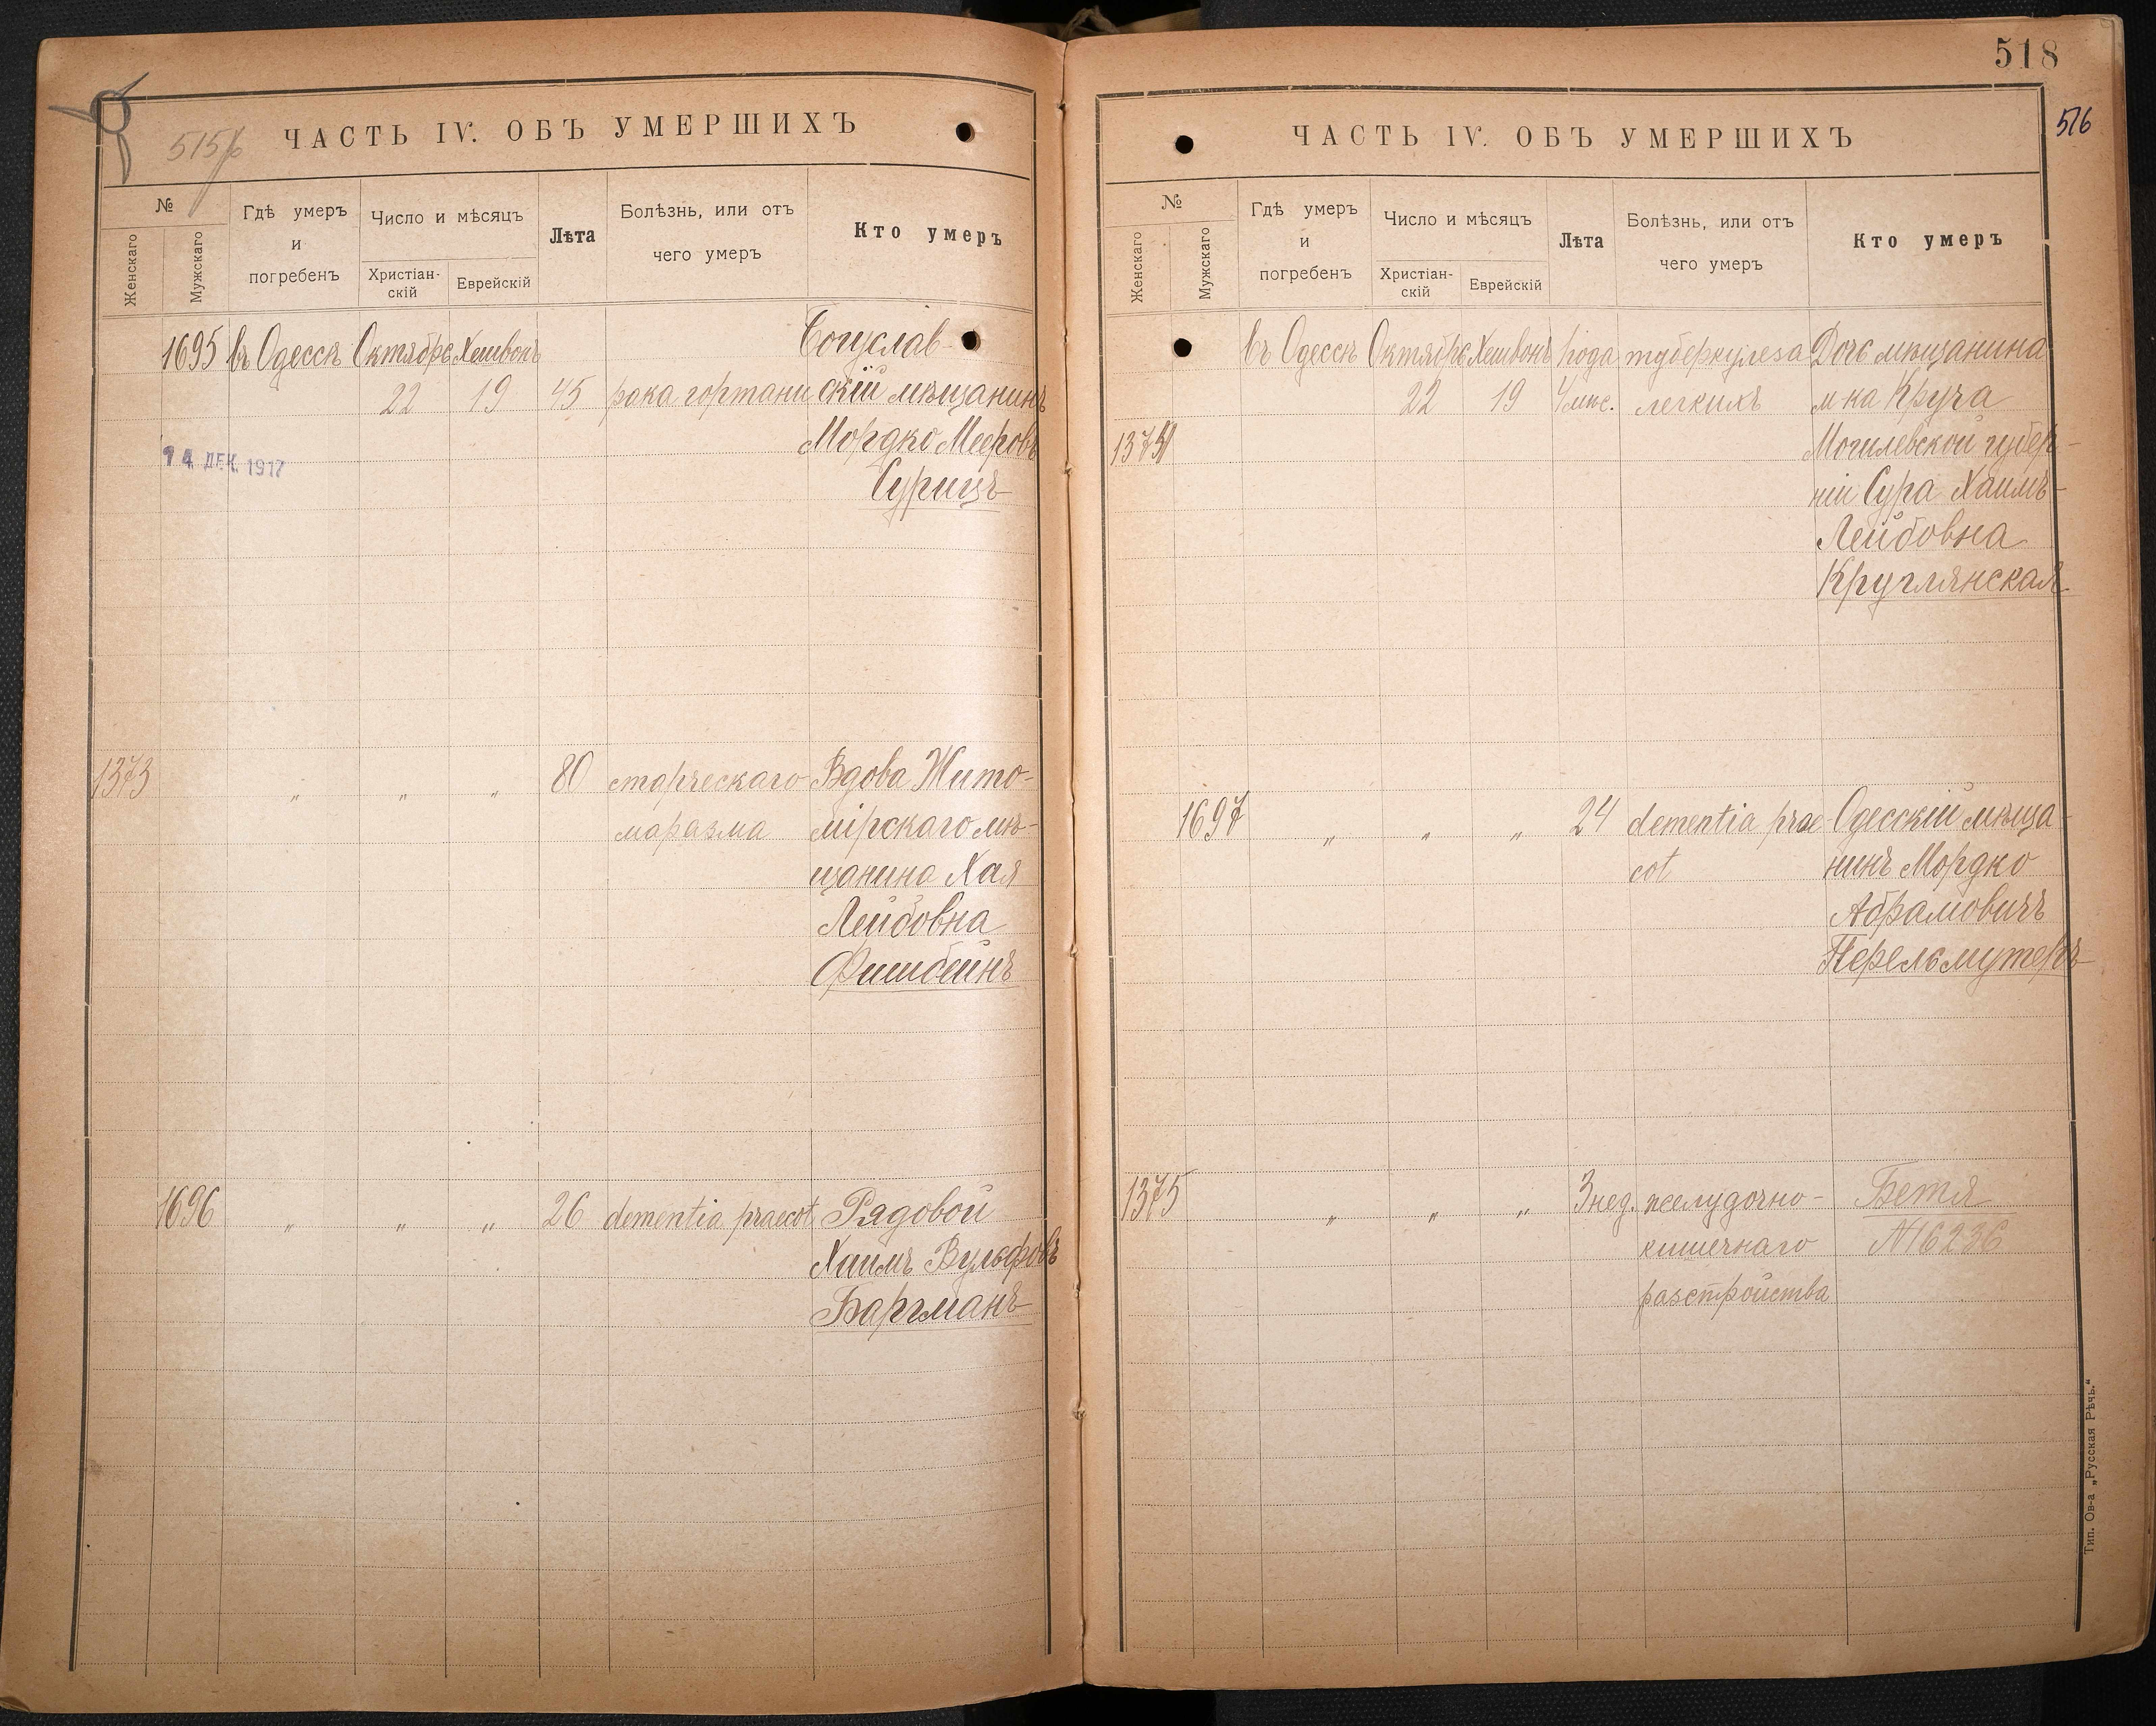 518
516
515
ЧАСТЬ IV. ОБЪ УМЕРШИХЪ
№
Женскаго
Мужскаго
Гдѣ умеръ
и
погребенъ
Число и мѣсяцъ
Христіан-
скій
Еврейскій
Лѣта
Болѣзнь, или отъ
чего умеръ
Кто умеръ
1695 въ Одессѣ Октябрь Хешвонъ Богуслав-
22 19 45 рака гортани скій мѣщанинъ
Мордко Мееровъ
14 ДЕК. 1917
Сурицъ
1373 „ „ „ 80 старческаго Вдова Жито-
маразма мірскаго мѣ-
щанина Хая
Лейбовна
Фишбейнъ
1696 „ „ „ 26 dementia praecot Рядовой
Хаимъ Вульфовъ
Баргманъ
ЧАСТЬ IV. ОБЪ УМЕРШИХЪ
№
Женскаго
Мужскаго
Гдѣ умеръ
и
погребенъ
Число и мѣсяцъ
Христіан-
скій
Еврейскій
Лѣта
Болѣзнь, или отъ
чего умеръ
Кто умеръ
въ Одессѣ Октябрь Хешвонъ 1 года туберкулеза Дочь мѣщанина
22 19 4 мѣс. легкихъ м-ка Круча
1374 Могилевской губер-
ніи Сура Хаимъ-
Лейбовна
Круглянская
1697 „ „ „ 24 dementia prae- Одесскій мѣща-
cot нинъ Мордко
Абрамовичъ
Перельмутеръ
1375 „ „ „ 3 нед. желудочно- Бетя
кишечнаго №16236
разстройства
Тип. Ов-а „Русская Рѣчь.“